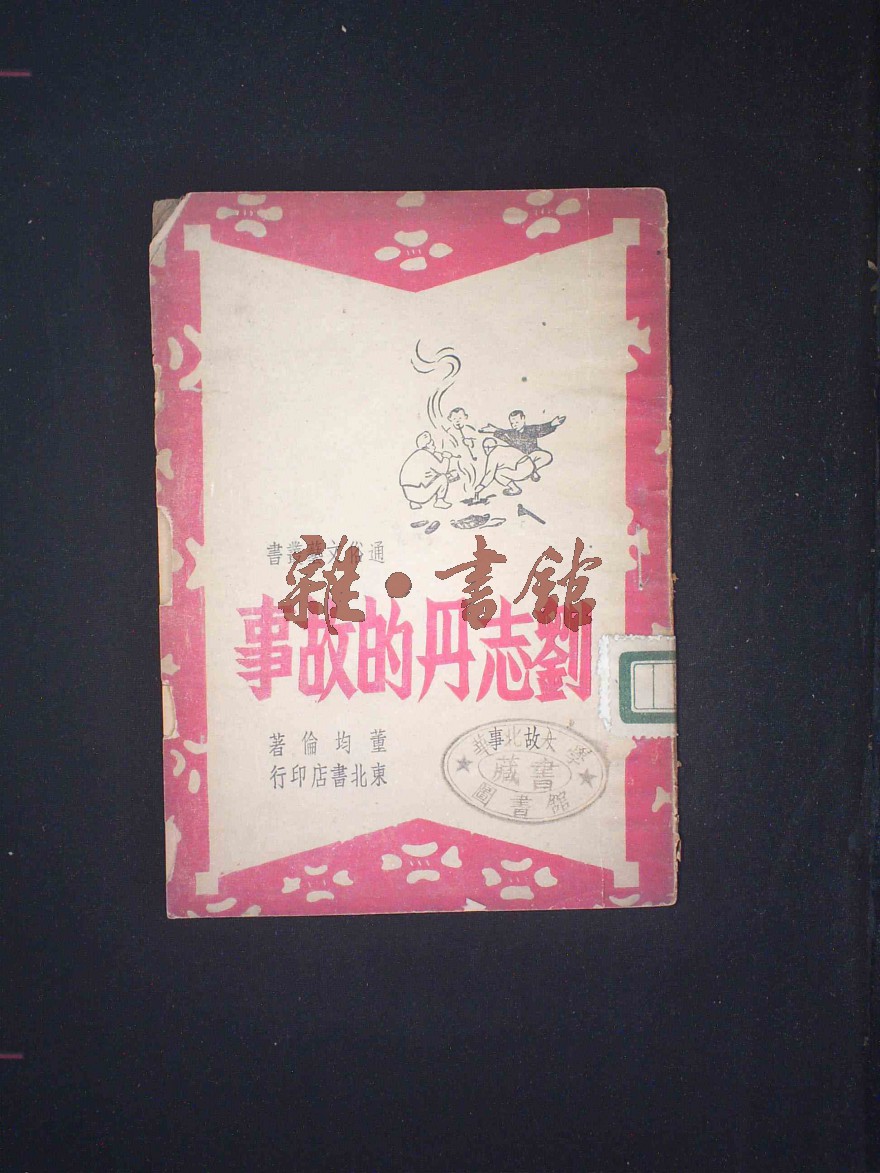 通俗文藝叢書
雜·書館
劉志丹的故事
董均倫著
東北書店印行
故事
華北大學
藏書
圖書館